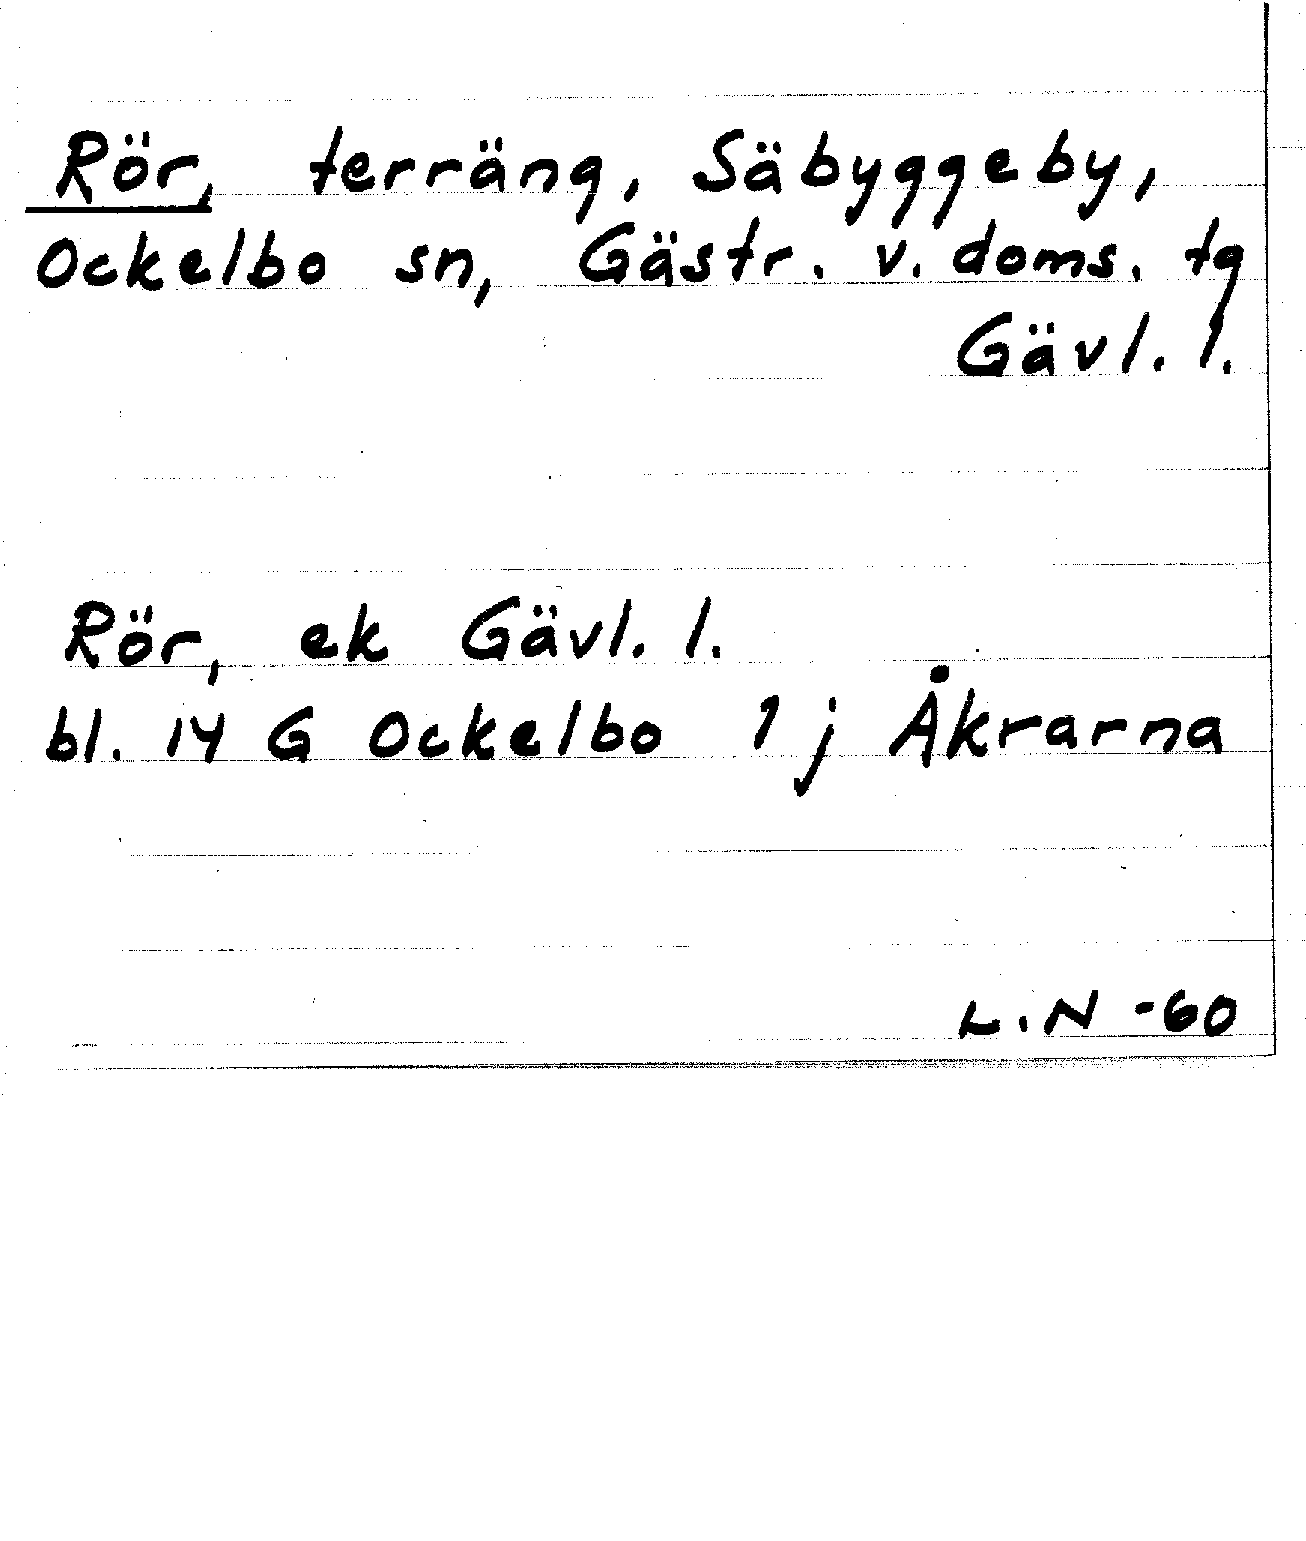 Rör, terräng, Säbyggeby,
Ockelbo sn, Gästr. v. doms. tg
Gävl. l.
Rör, ek Gävl. l.
bl. 14 G Ockelbo 1 j Åkrarna
L.N -60